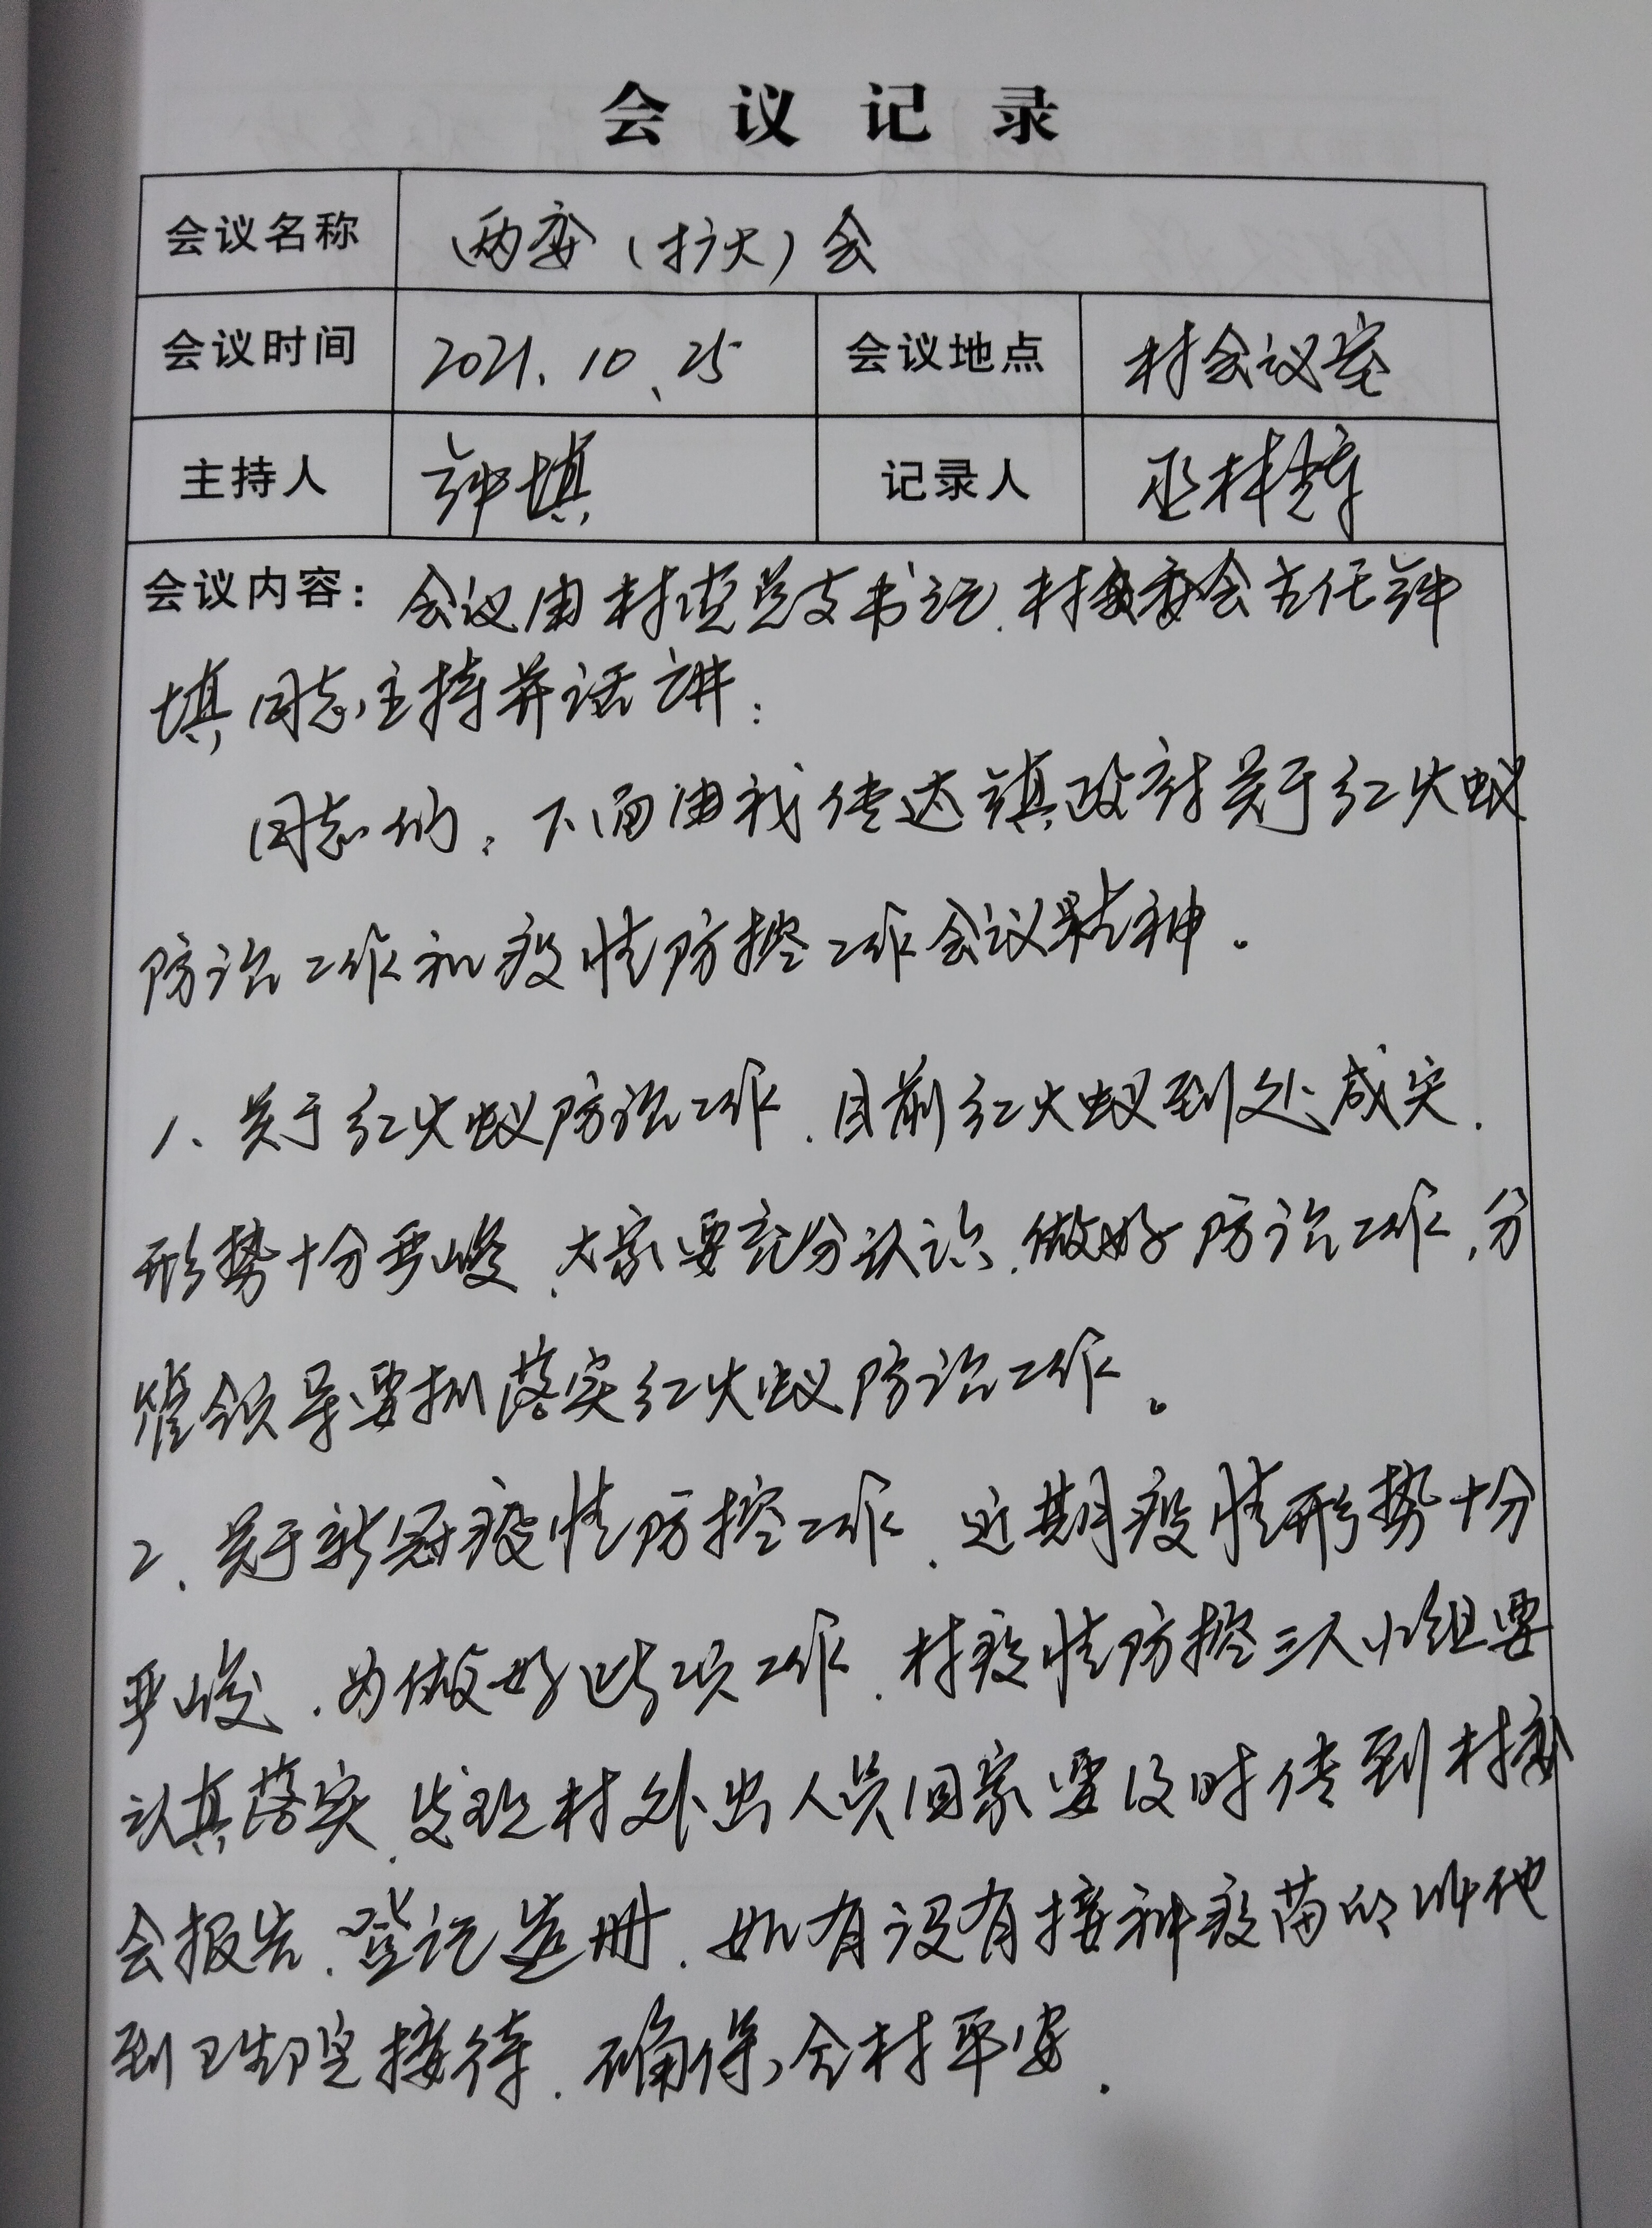 会议记录
会议名称 两委（扩大）会
会议时间 2021.10.25 会议地点 村会议室
主持人 钟填 记录人 巫林
会议内容：会议由村党总支书记、村委会主任钟
填同志主持并话讲：
同志们，下面由我传达镇政府关于红火蚁
防治工作和疫情防控工作会议精神。
1、关于红火蚁防治工作，目前红火蚁到处成灾，
形势十分严峻，大家要充分认识，做好防治工作，分
管领导要抓落实红火蚁防治工作。
2、关于新冠疫情防控工作，近期疫情形势十分
严峻，为做好此项工作，村疫情防控三人小组要
认真落实，发现村外出人员回家要及时传到村委
会报告，登记造册，如有没有接种疫苗的叫他
到卫生院接待，确保全村平安.